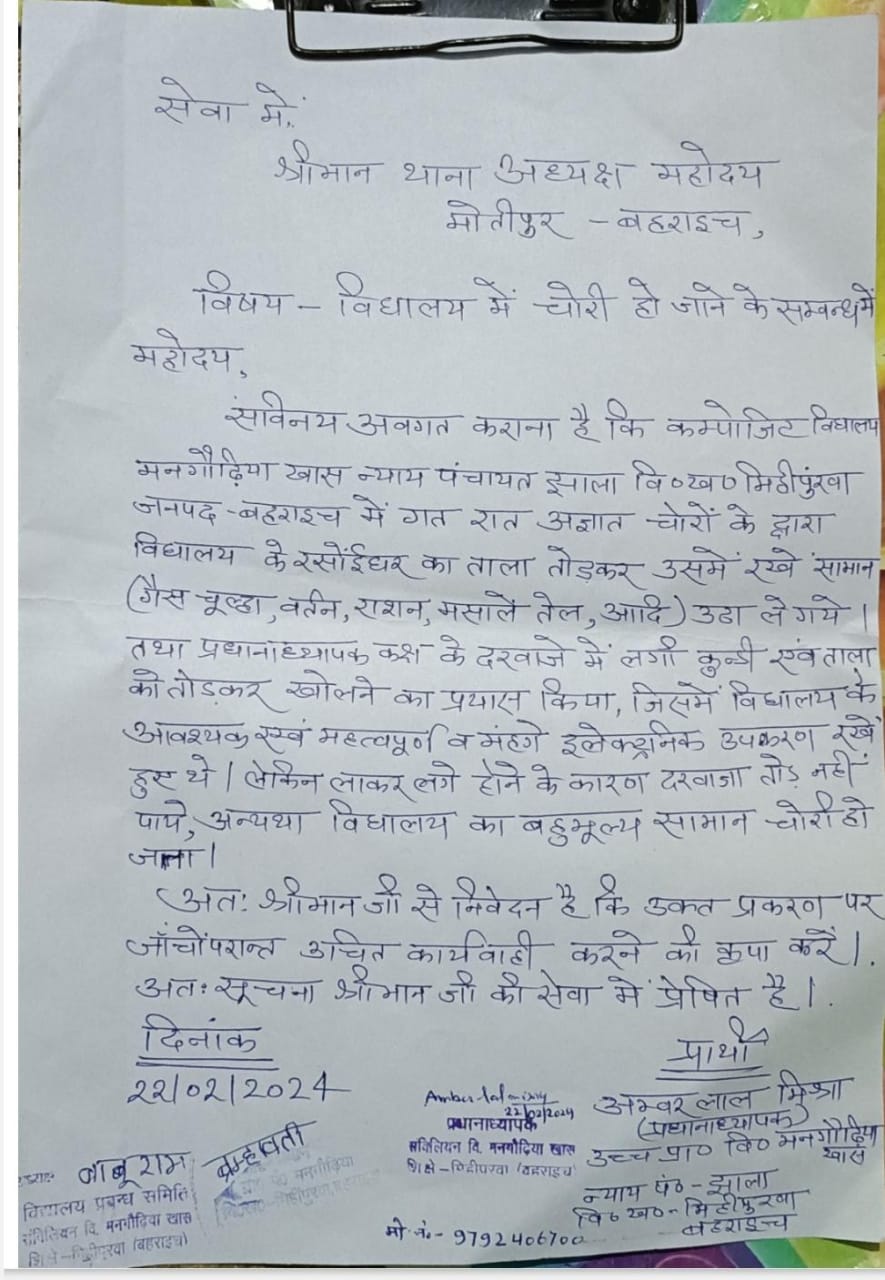 सेवा में,
श्रीमान थाना अध्यक्ष महोदय
मोतीपुर - बहराइच,
विषय - विद्यालय में चोरी हो जाने के सम्बन्ध में
महोदय,
सविनय अवगत कराना है कि कम्पोजिट विद्यालय
मनगौढ़िया खास न्याय पंचायत झाला वि०ख० मिहीपुरवा
जनपद - बहराइच में गत रात अज्ञात चोरों के द्वारा
विद्यालय के रसोंईघर का ताला तोड़कर उसमें रखे सामान
(गैस चूल्हा, वर्तन, राशन, मसाले तेल, आदि) उठा ले गये।
तथा प्रधानाध्यापक कक्ष के दरवाजे में लगी कुन्डी एंव ताला
को तोड़कर खोलने का प्रयास किया, जिसमें विद्यालय के
आवश्यक एवं महत्वपूर्ण व मंहगे इलेक्ट्रनिक उपकरण रखे
हुए थे। लेकिन लाकर लगे होने के कारण दरवाजा तोड़ नहीं
पाये, अन्यथा विद्यालय का बहुमूल्य सामान चोरी हो
जाता।
अतः श्रीमान जी से निवेदन है कि उक्त प्रकरण पर
जाँचोंपरान्त उचित कार्यवाही करने की कृपा करें।
अतः सूचना श्रीमान जी की सेवा में प्रेषित है।
दिनांक
22/02/2024
प्रार्थी
अम्बर लाल मिश्रा
(प्रधानाध्यापक)
उच्च प्रा० वि० मनगौढ़िया
खास
न्याय पं० - झाला
वि०ख० - मिहीपुरवा
बहराइच
Amber lal
22/02/2024
प्रधानाध्यापक
संविलियन वि. मनगौढ़िया खास
शि क्षे - मिहीपुरवा (बहराइच)
मो नं० - 9792406700
बाबूराम
ब्रम्हावती
विद्यालय प्रबन्ध समिति
संविलियन वि. मनगौढ़िया खास
शि क्षे - मिहीपुरवा (बहराइच)